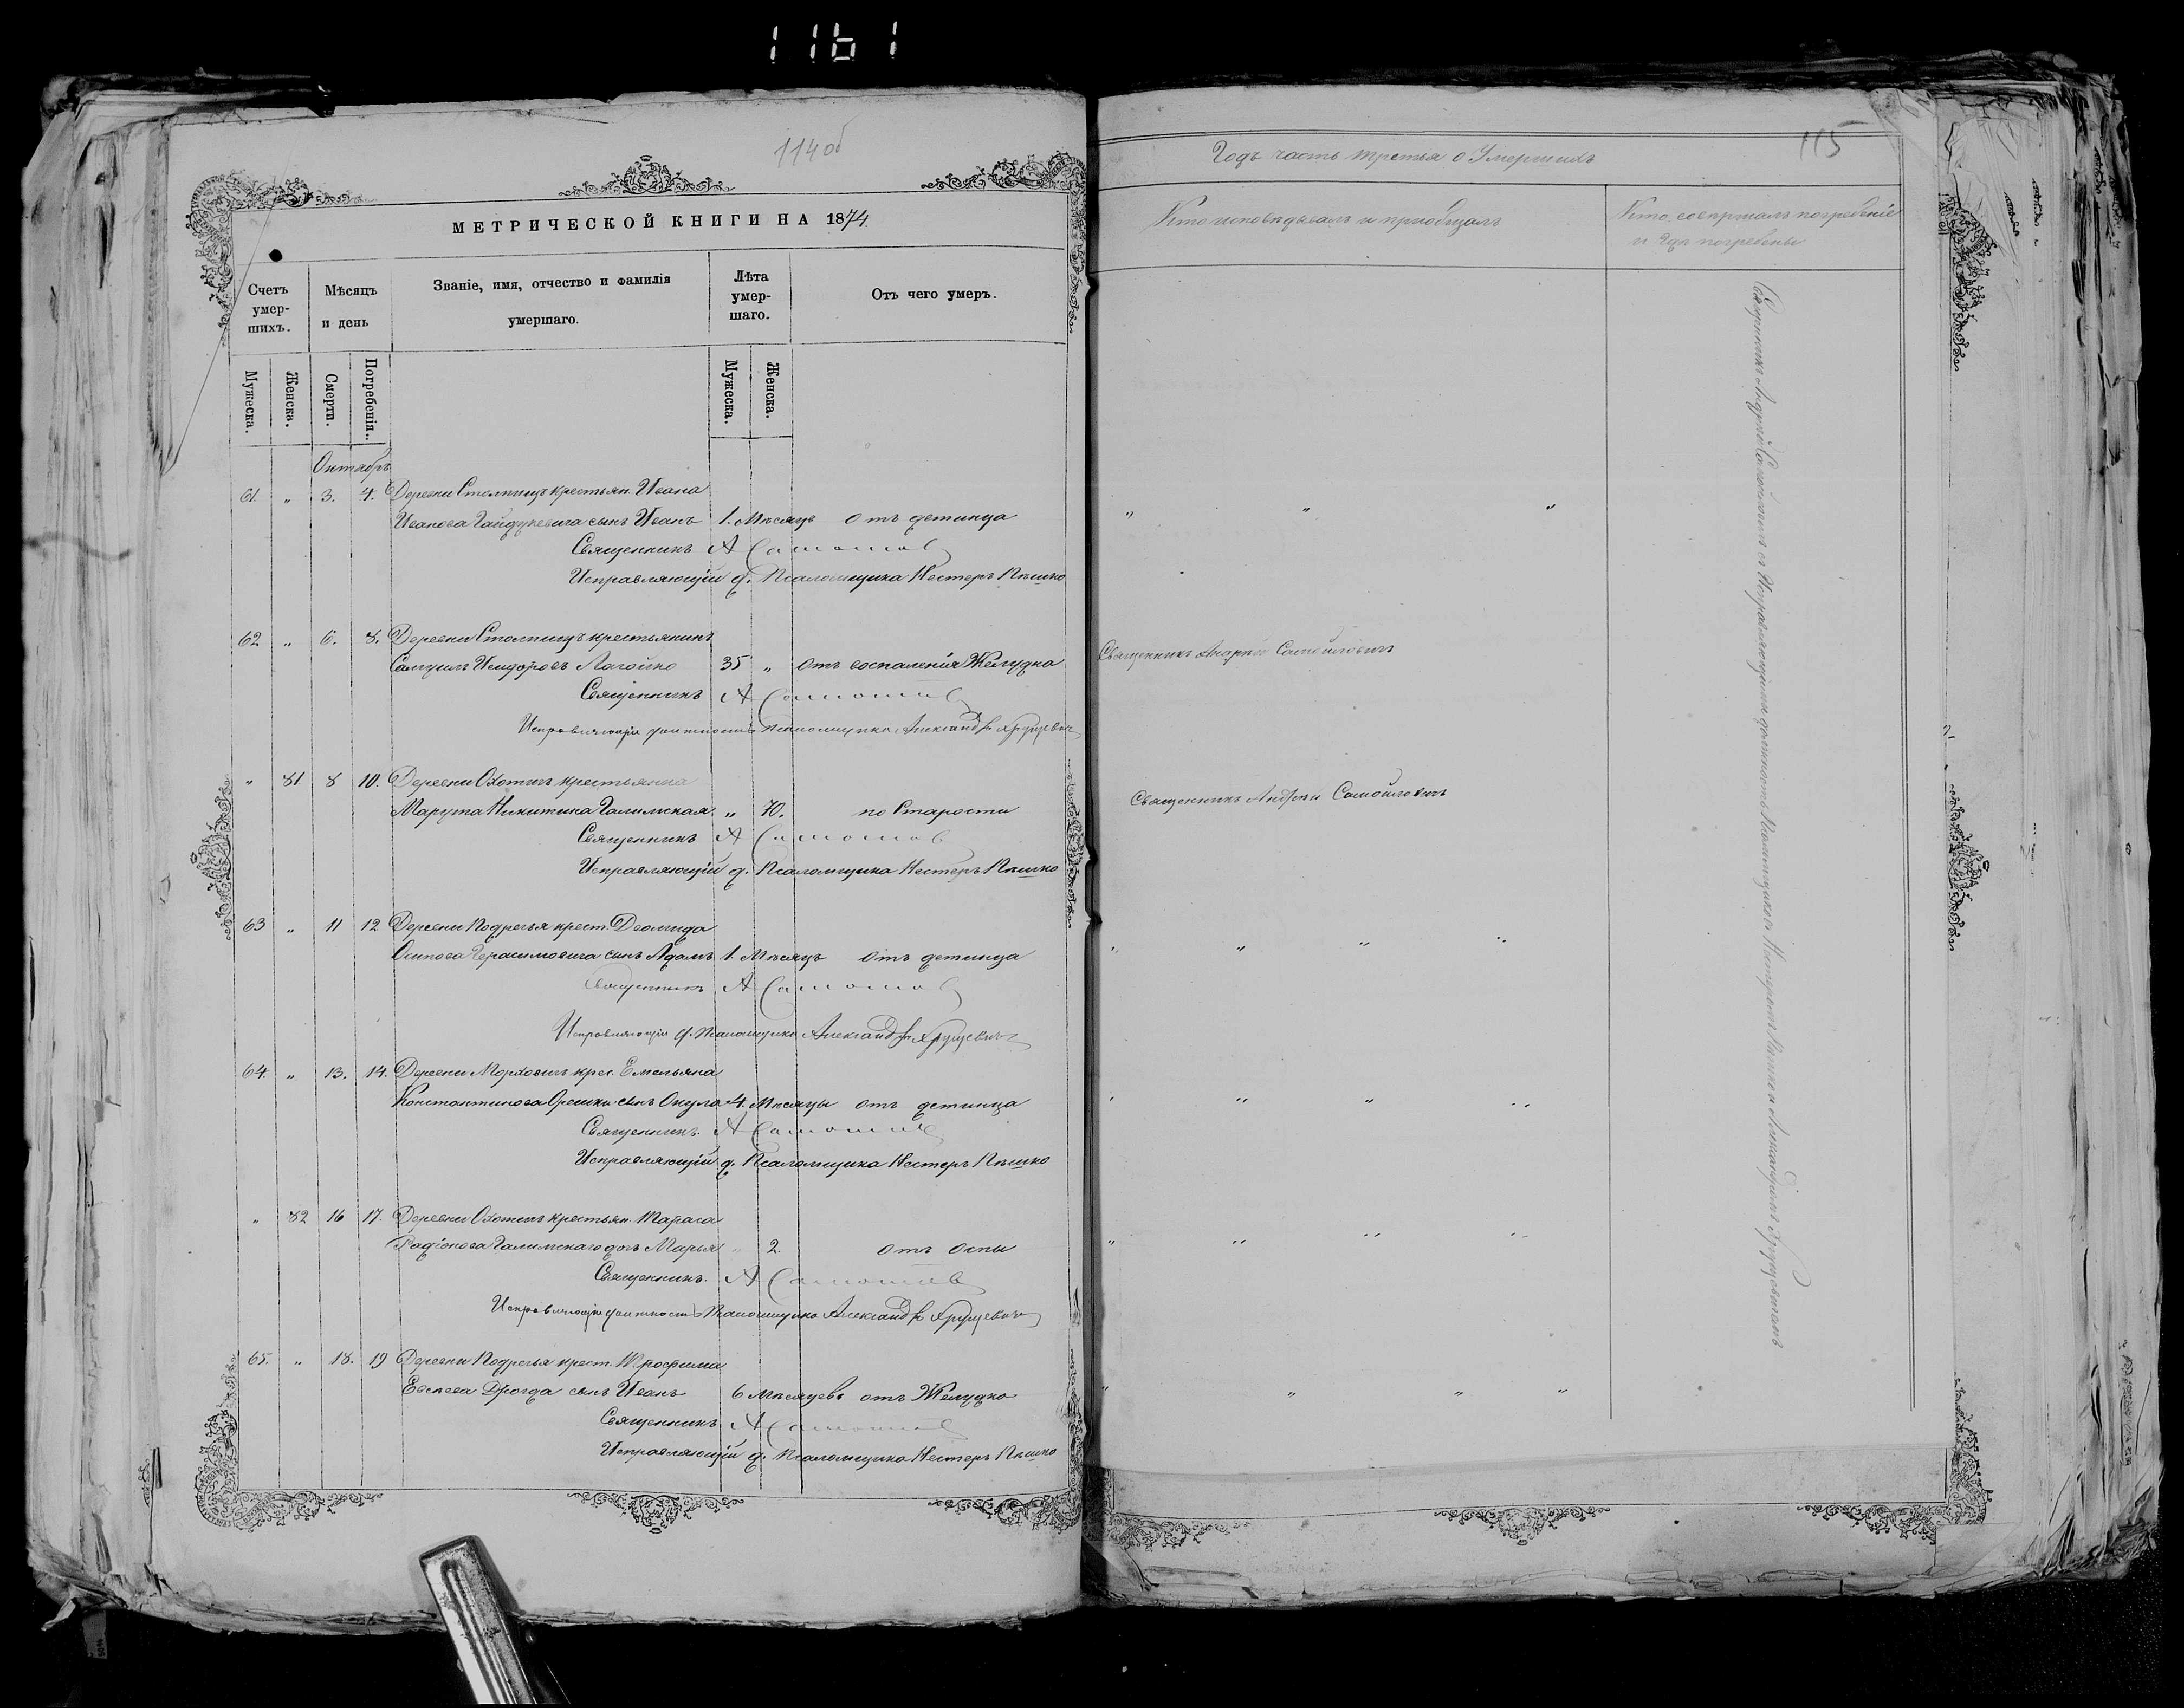 1161
114 об
МЕТРИЧЕСКОЙ КНИГИ НА 1874
Счетъ умер-шихъ.
Мѣсяцъ и день
Званіе, имя, отчество и фамилія умершаго.
Лѣта умер-шаго.
Отъ чего умеръ.
Мужеска.
Женска.
Смерти.
Погребенія.
Мужеска.
Женска.
Октябрь
61. „ 3. 4. Деревни Столпищъ крестьян. Ивана
Иванова Гайдукевича сынъ Иванъ 1. Мѣсяцъ отъ детинца
Священникъ А
Исправляющій д. Псаломщика Нестеръ Пышко
62 „ 6. 8. Деревни Столпищъ крестьянинъ
Самуилъ Исидоровъ Лагойко 35 „ отъ воспаленія Желудка
Священникъ А
Исправляющій должность Псаломщика Александръ Хруцевичъ
„ 81 8 10. Деревни Охотичъ крестьянка
Марута Никитина Галимская „ 70. по Старости
Священникъ А
Исправляющій д. Псаломщика Нестеръ Пышко
63 „ 11 12 Деревни Подречья крест. Деомида
Осипова Герасимовича сынъ Адамъ 1. Мѣсяцъ отъ детинца
Священникъ А
Исправляющій д. Псаломщика Александръ Хруцевичъ
64. „ 13. 14. Деревни Морховичъ крес. Емельяна
Константинова Орешки сынъ Окула 4. Мѣсяцы отъ детинца
Священникъ. А
Исправляющій д. Псаломщика Нестеръ Пышко
„ 82 16 17. Деревни Охотичъ крестьян. Тараса
Радіонова Галимскаго дочь Марья „ 2. отъ оспы
Священникъ. А
Исправляющій должность Псаломщика Александръ Хруцевичъ
65. „ 18. 19 Деревни Подречья крест. Трофима
Евсеева Дрозда сынъ Иванъ 6 Мѣсяцевъ отъ Желудка
Священникъ А
Исправляющій д. Псаломщика Нестеръ Пышко
115
Годъ часть третья о Умершихъ
Кто исповѣдывалъ и пріобщалъ
Кто совершалъ погребеніе
и гдѣ погребены
„ „ „
Священникъ Андрей Самойловичъ
Священникъ Андрей Самойловичъ
„ „ „ „
„ „ „ „
„ „ „ „
„ „ „ „
Священникъ Андрей Самойловичъ съ Исправляющими должность Псаломщиковъ Нестеромъ Пышко и Александромъ Хруцевичемъ